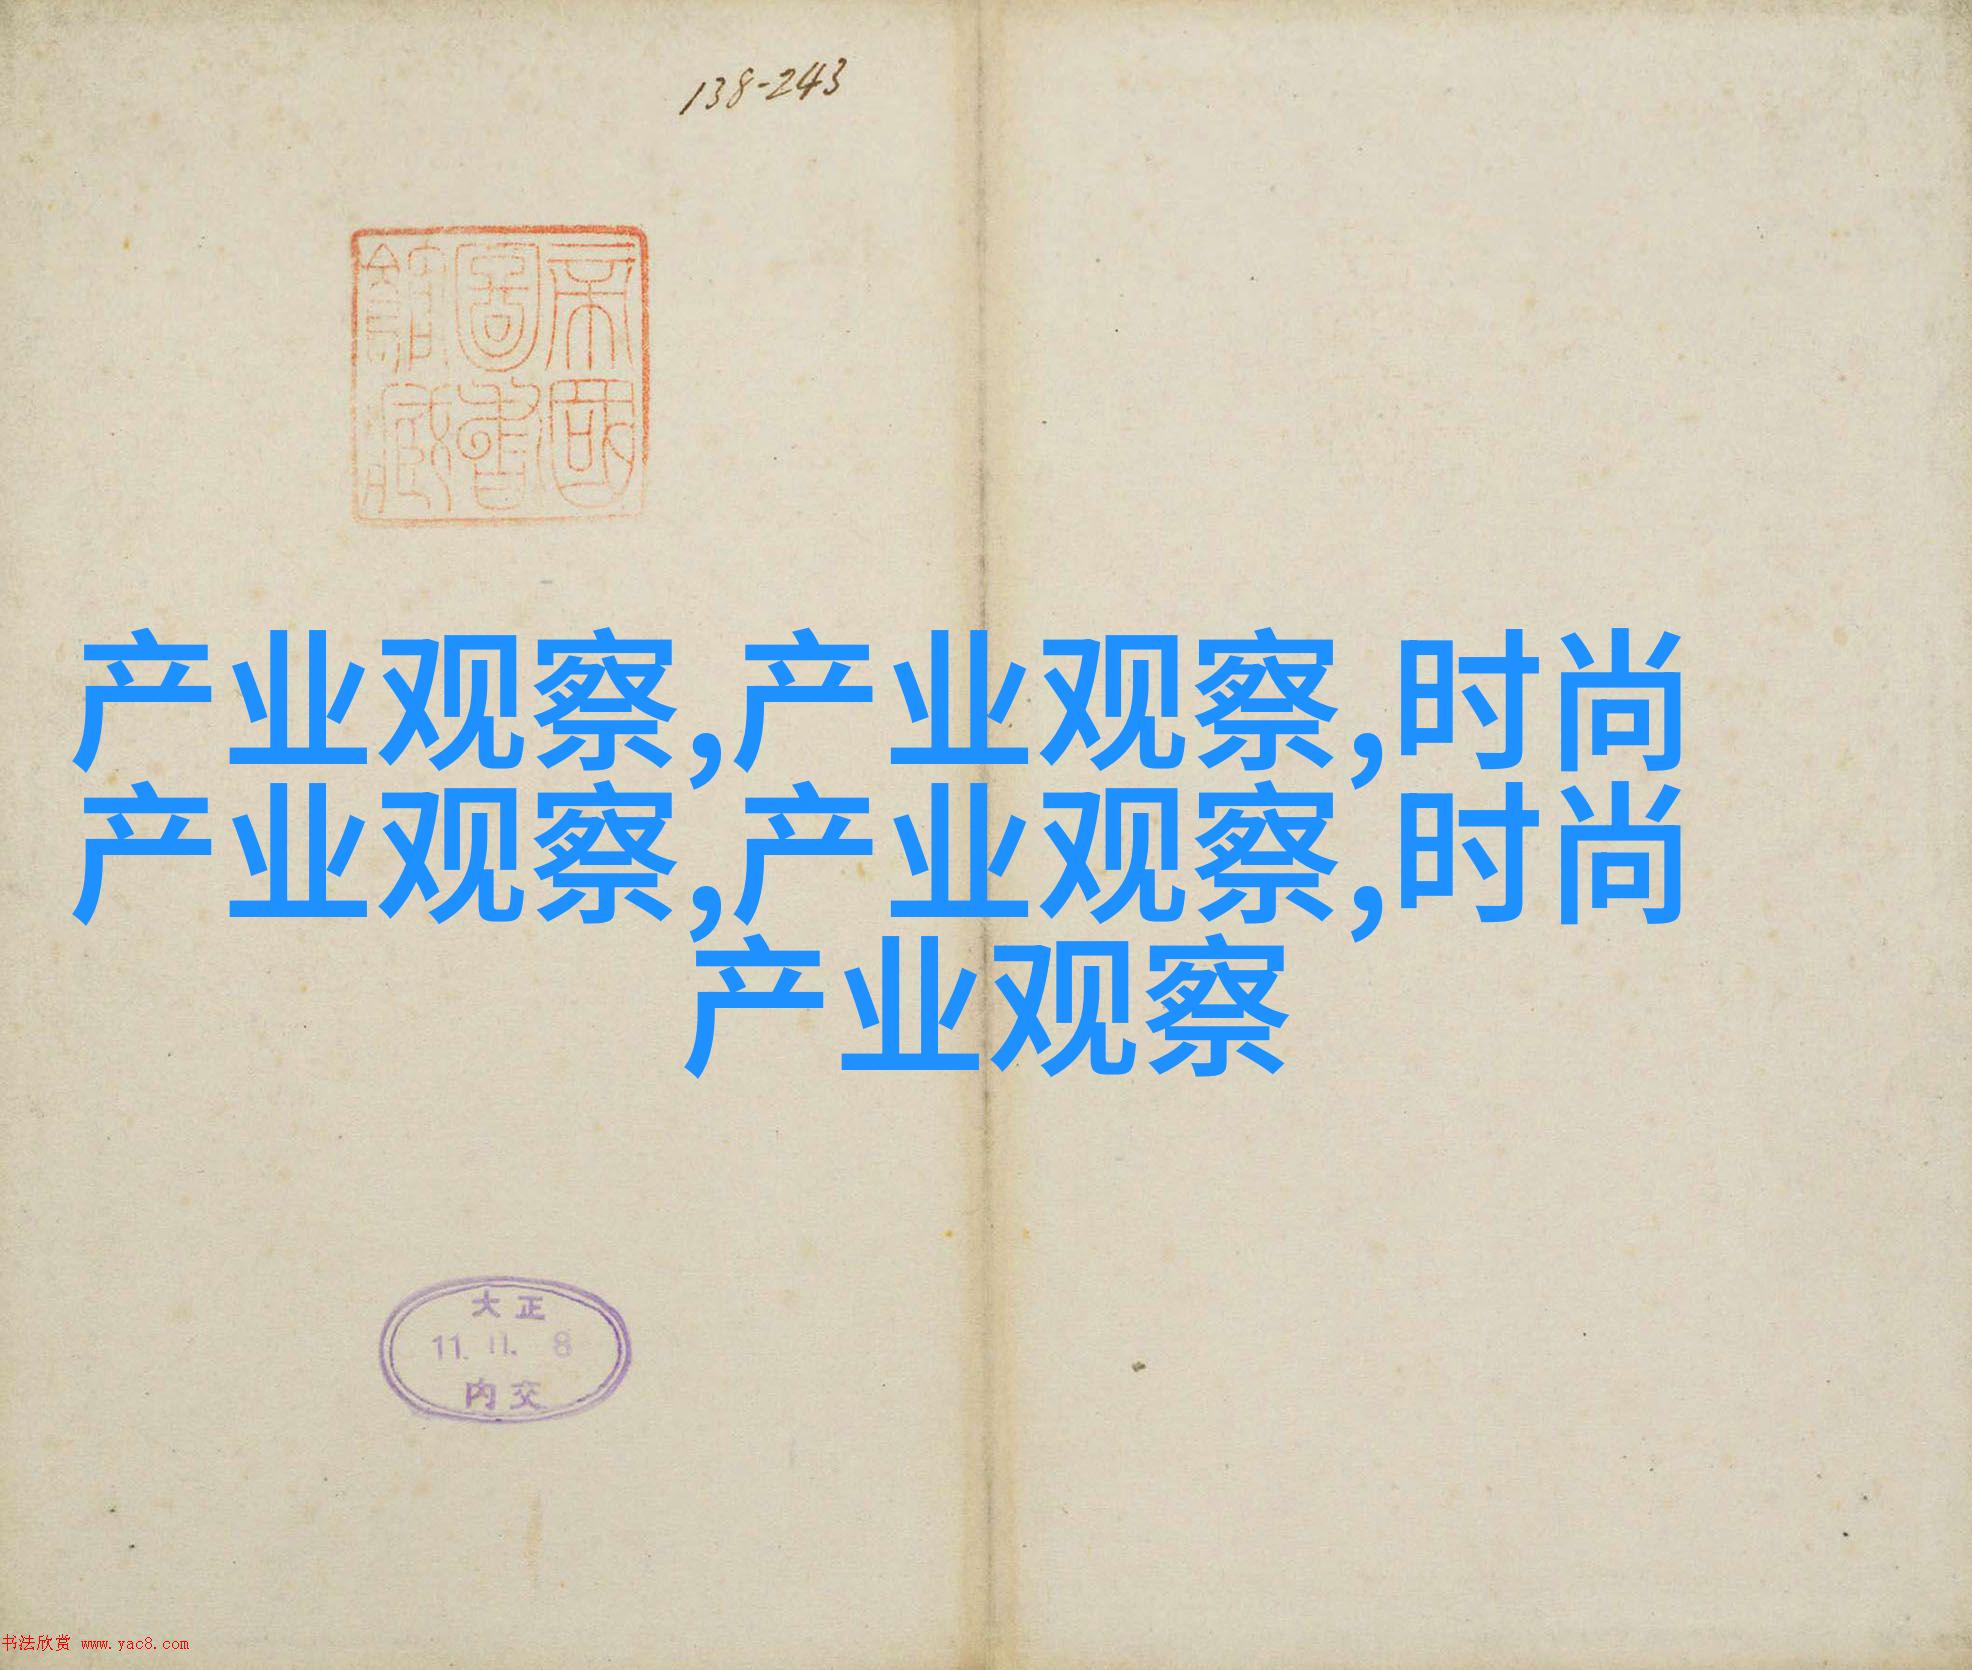 138-243
帝國
圖書
館藏
产业观察,产业观察,时尚
产业观察,产业观察,时尚
产业观察
大正
11. 11. 8
内交
书法欣赏 www.yac8.com